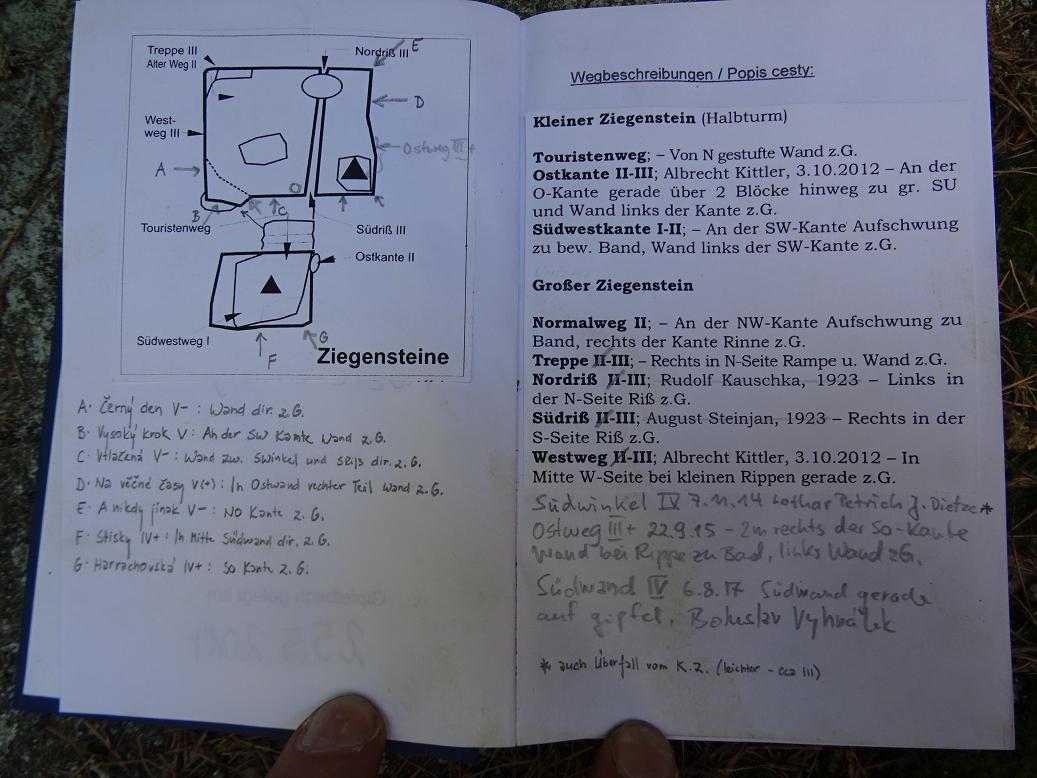 Treppe III
Alter Weg II
Nordriß III
E
D
West-
weg III
Ostweg III+
A
B
C
Touristenweg
Südriß III
Ostkante II
Südwestweg I
F
G
Ziegensteine
A· Černý den V- : Wand dir. z.G.
B· Vysoký krok V: An der SW Kante Wand z.G.
C· Vtlačená V- : Wand zw. Swinkel und SRiß dir. z.G.
D· Na věčné časy V(+) : In Ostwand rechter Teil Wand z.G.
E· A nikdy jinak V- : NO Kante z.G.
F· Stisky IV+ : In Mitte Südwand dir. z.G.
G· Harrachovská IV+ : SO Kante z.G.
Wegbeschreibungen / Popis cesty:
Kleiner Ziegenstein (Halbturm)
Touristenweg; – Von N gestufte Wand z.G.
Ostkante II-III; Albrecht Kittler, 3.10.2012 – An der
O-Kante gerade über 2 Blöcke hinweg zu gr. SU
und Wand links der Kante z.G.
Südwestkante I-II; – An der SW-Kante Aufschwung
zu bew. Band, Wand links der SW-Kante z.G.
Großer Ziegenstein
Normalweg II; – An der NW-Kante Aufschwung zu
Band, rechts der Kante Rinne z.G.
Treppe II-III; – Rechts in N-Seite Rampe u. Wand z.G.
Nordriß II-III; Rudolf Kauschka, 1923 – Links in
der N-Seite Riß z.G.
Südriß II-III; August Steinjan, 1923 – Rechts in der
S-Seite Riß z.G.
Westweg II-III; Albrecht Kittler, 3.10.2012 – In
Mitte W-Seite bei kleinen Rippen gerade z.G.
Südwinkel IV 7.11.14 Lothar Petrich J. Dietze *
Ostweg III+ 22.9.15 – 2m rechts der SO-Kante
Wand bei Rippe zu Bad, links Wand z.G.
Südwand IV 6.8.17 Südwand gerade
auf gipfel. Bohuslav Vyhnálek
* auch Überfall vom K.Z. (leichter - cca III)